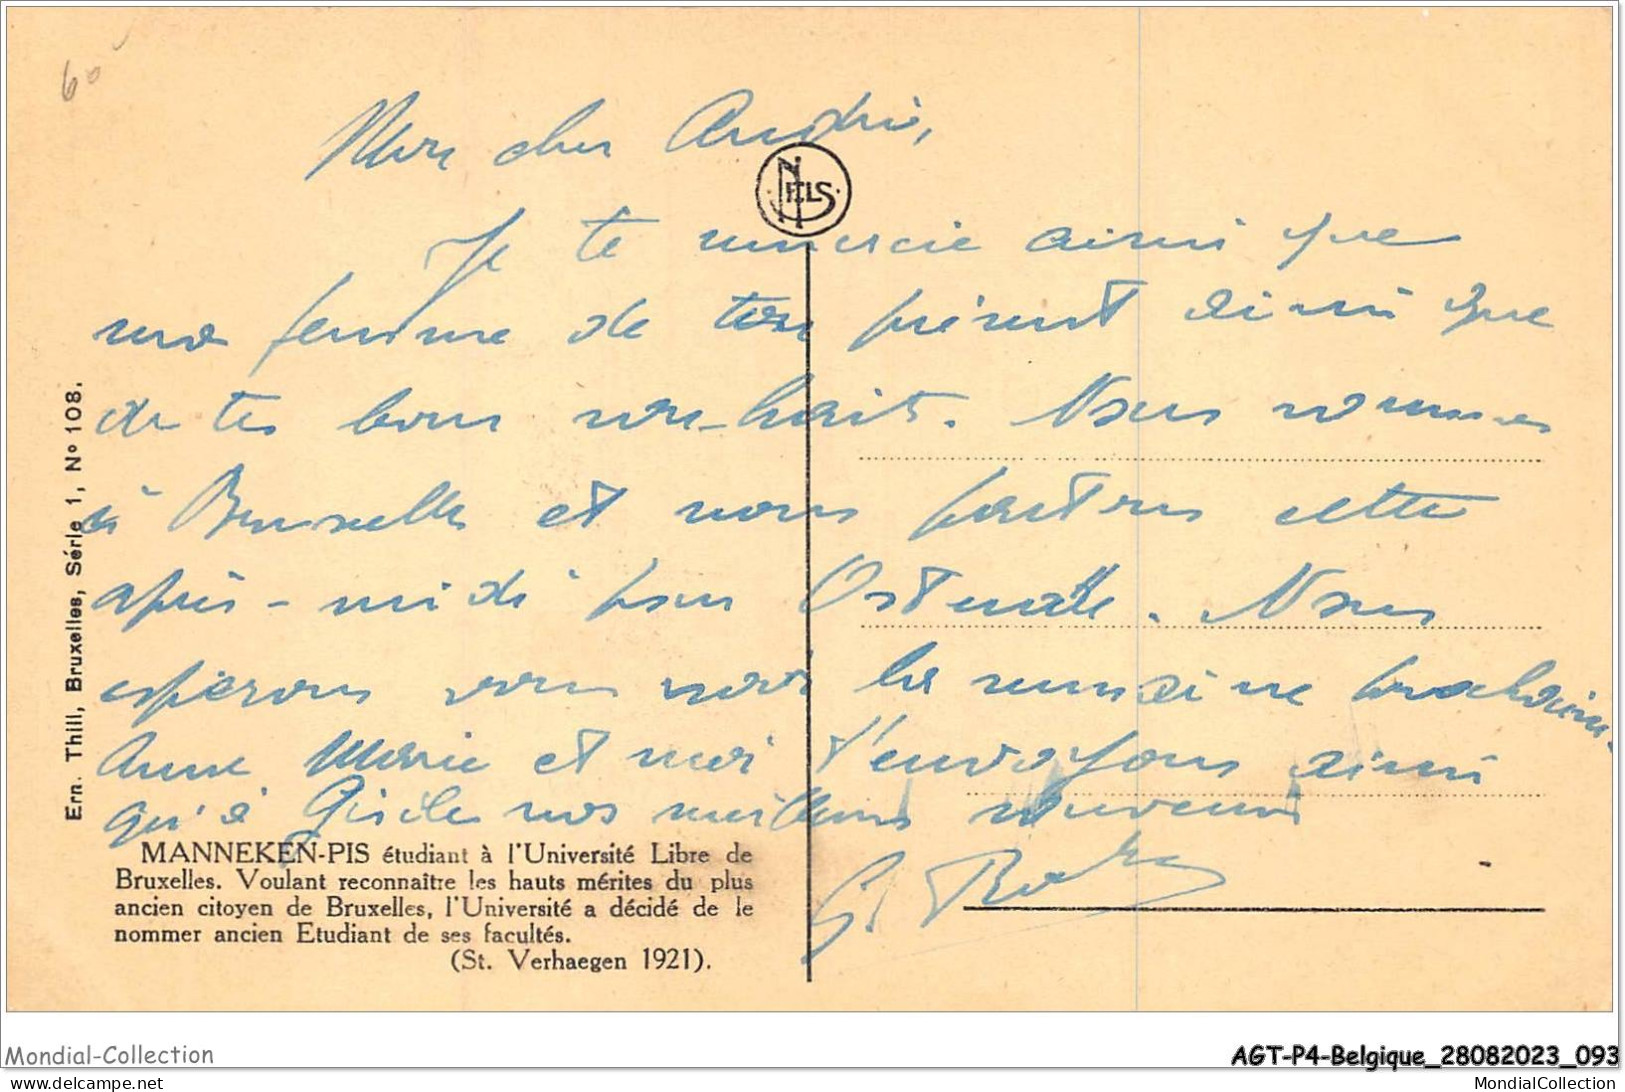 60
Mon cher André,
NELS
Je te remercie ainsi que
ma femme de ton présent ainsi que
de tes bons souhaits. Nous sommes
à Bruxelles et nous partons cette
après-midi pour Ostende. Nous
espérons vous voir la semaine prochaine.
Anne Marie et moi t'envoyons ainsi
qu'à Gisèle nos meilleurs souvenirs
G.
Ern. Thill, Bruxelles, Série 1, N° 108.
MANNEKEN-PIS étudiant à l'Université Libre de
Bruxelles. Voulant reconnaître les hauts mérites du plus
ancien citoyen de Bruxelles, l'Université a décidé de le
nommer ancien Etudiant de ses facultés.
(St. Verhaegen 1921).
Mondial-Collection
AGT-P4-Belgique_28082023_093
https://www.delcampe.net
MondialCollection